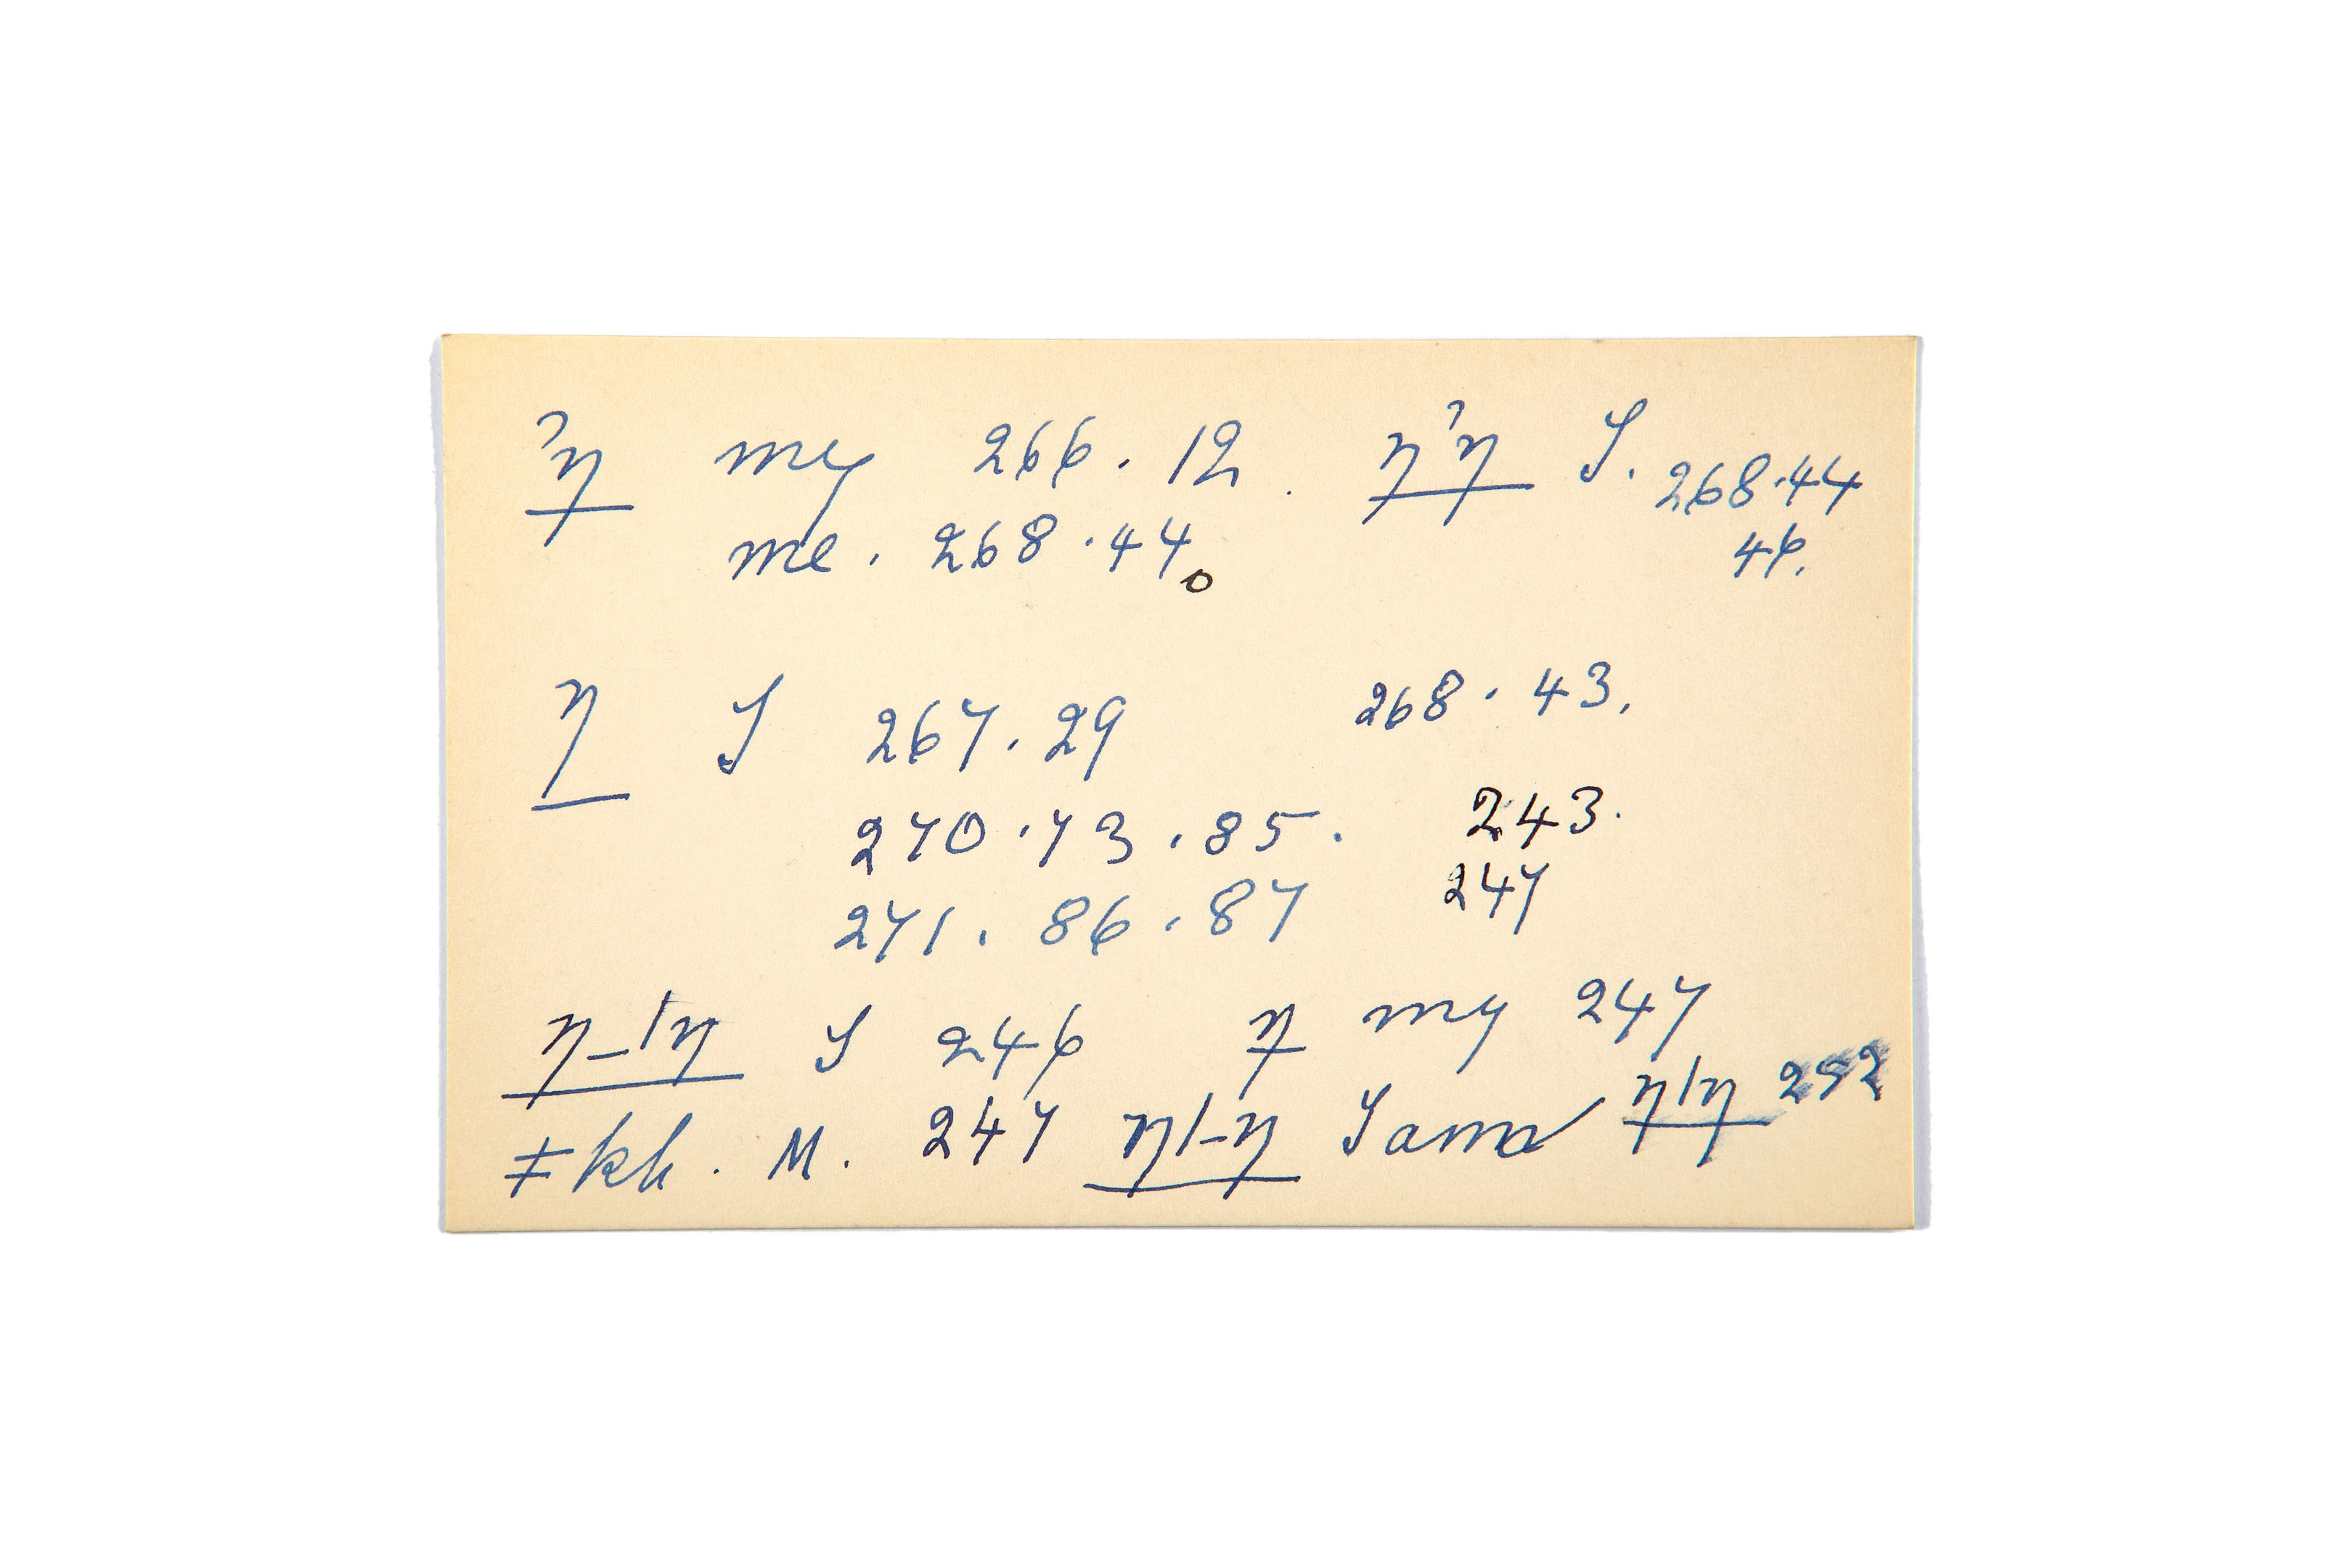 ˀŋ my 266 . 12 . ŋˀŋ I. 268.44
me . 268 .44. 46.
ŋ I 267.29 268 . 43.
270 .73 .85. 243.
271. 86 .87 247
ŋ_|ŋ I 246 ŋ my 247
ǂkh . M. 247 ŋ|-ŋ ŋ|ŋ